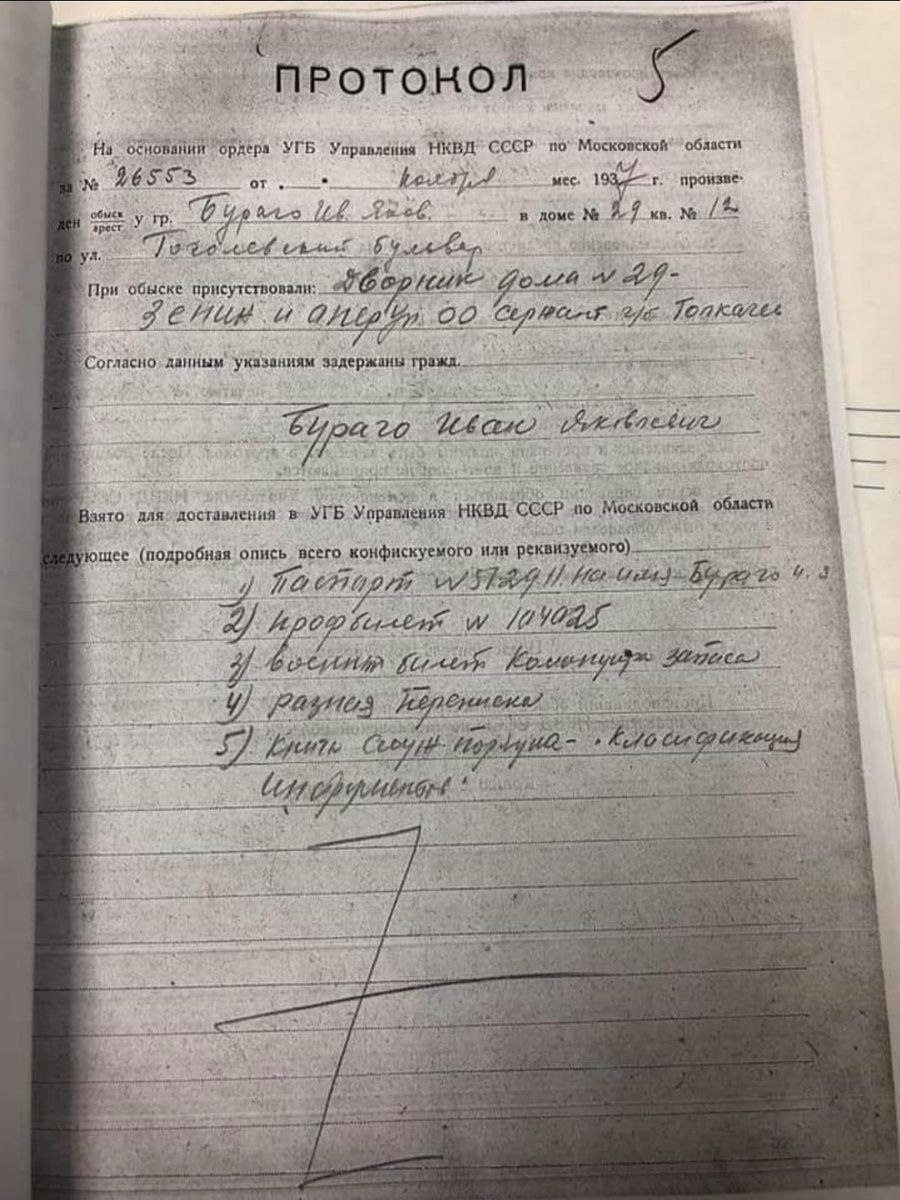 ПРОТОКОЛ 5
На основании ордера УГБ Управления НКВД СССР по Московской области
за № 26553 от . " ноября мес. 1937 г. произве-
ден обыск/арест у гр. Бураго Ив. Яков. в доме № 29 кв. № 12
по ул. Гоголевский бульвар
При обыске присутствовали: Дворник дома № 29-
Зенин и оперуп. ОО сержант г/б Толкачев
Согласно данным указаниям задержаны гражд.
Бураго Иван Яковлевич
Взято для доставления в УГБ Управления НКВД СССР по Московской области
следующее (подробная опись всего конфискуемого или реквизуемого)
1) Паспорт № на имя Бураго И. Я
2) профбилет № 104025
3) билет командира запаса
4) разная переписка
5) книга - Класификация